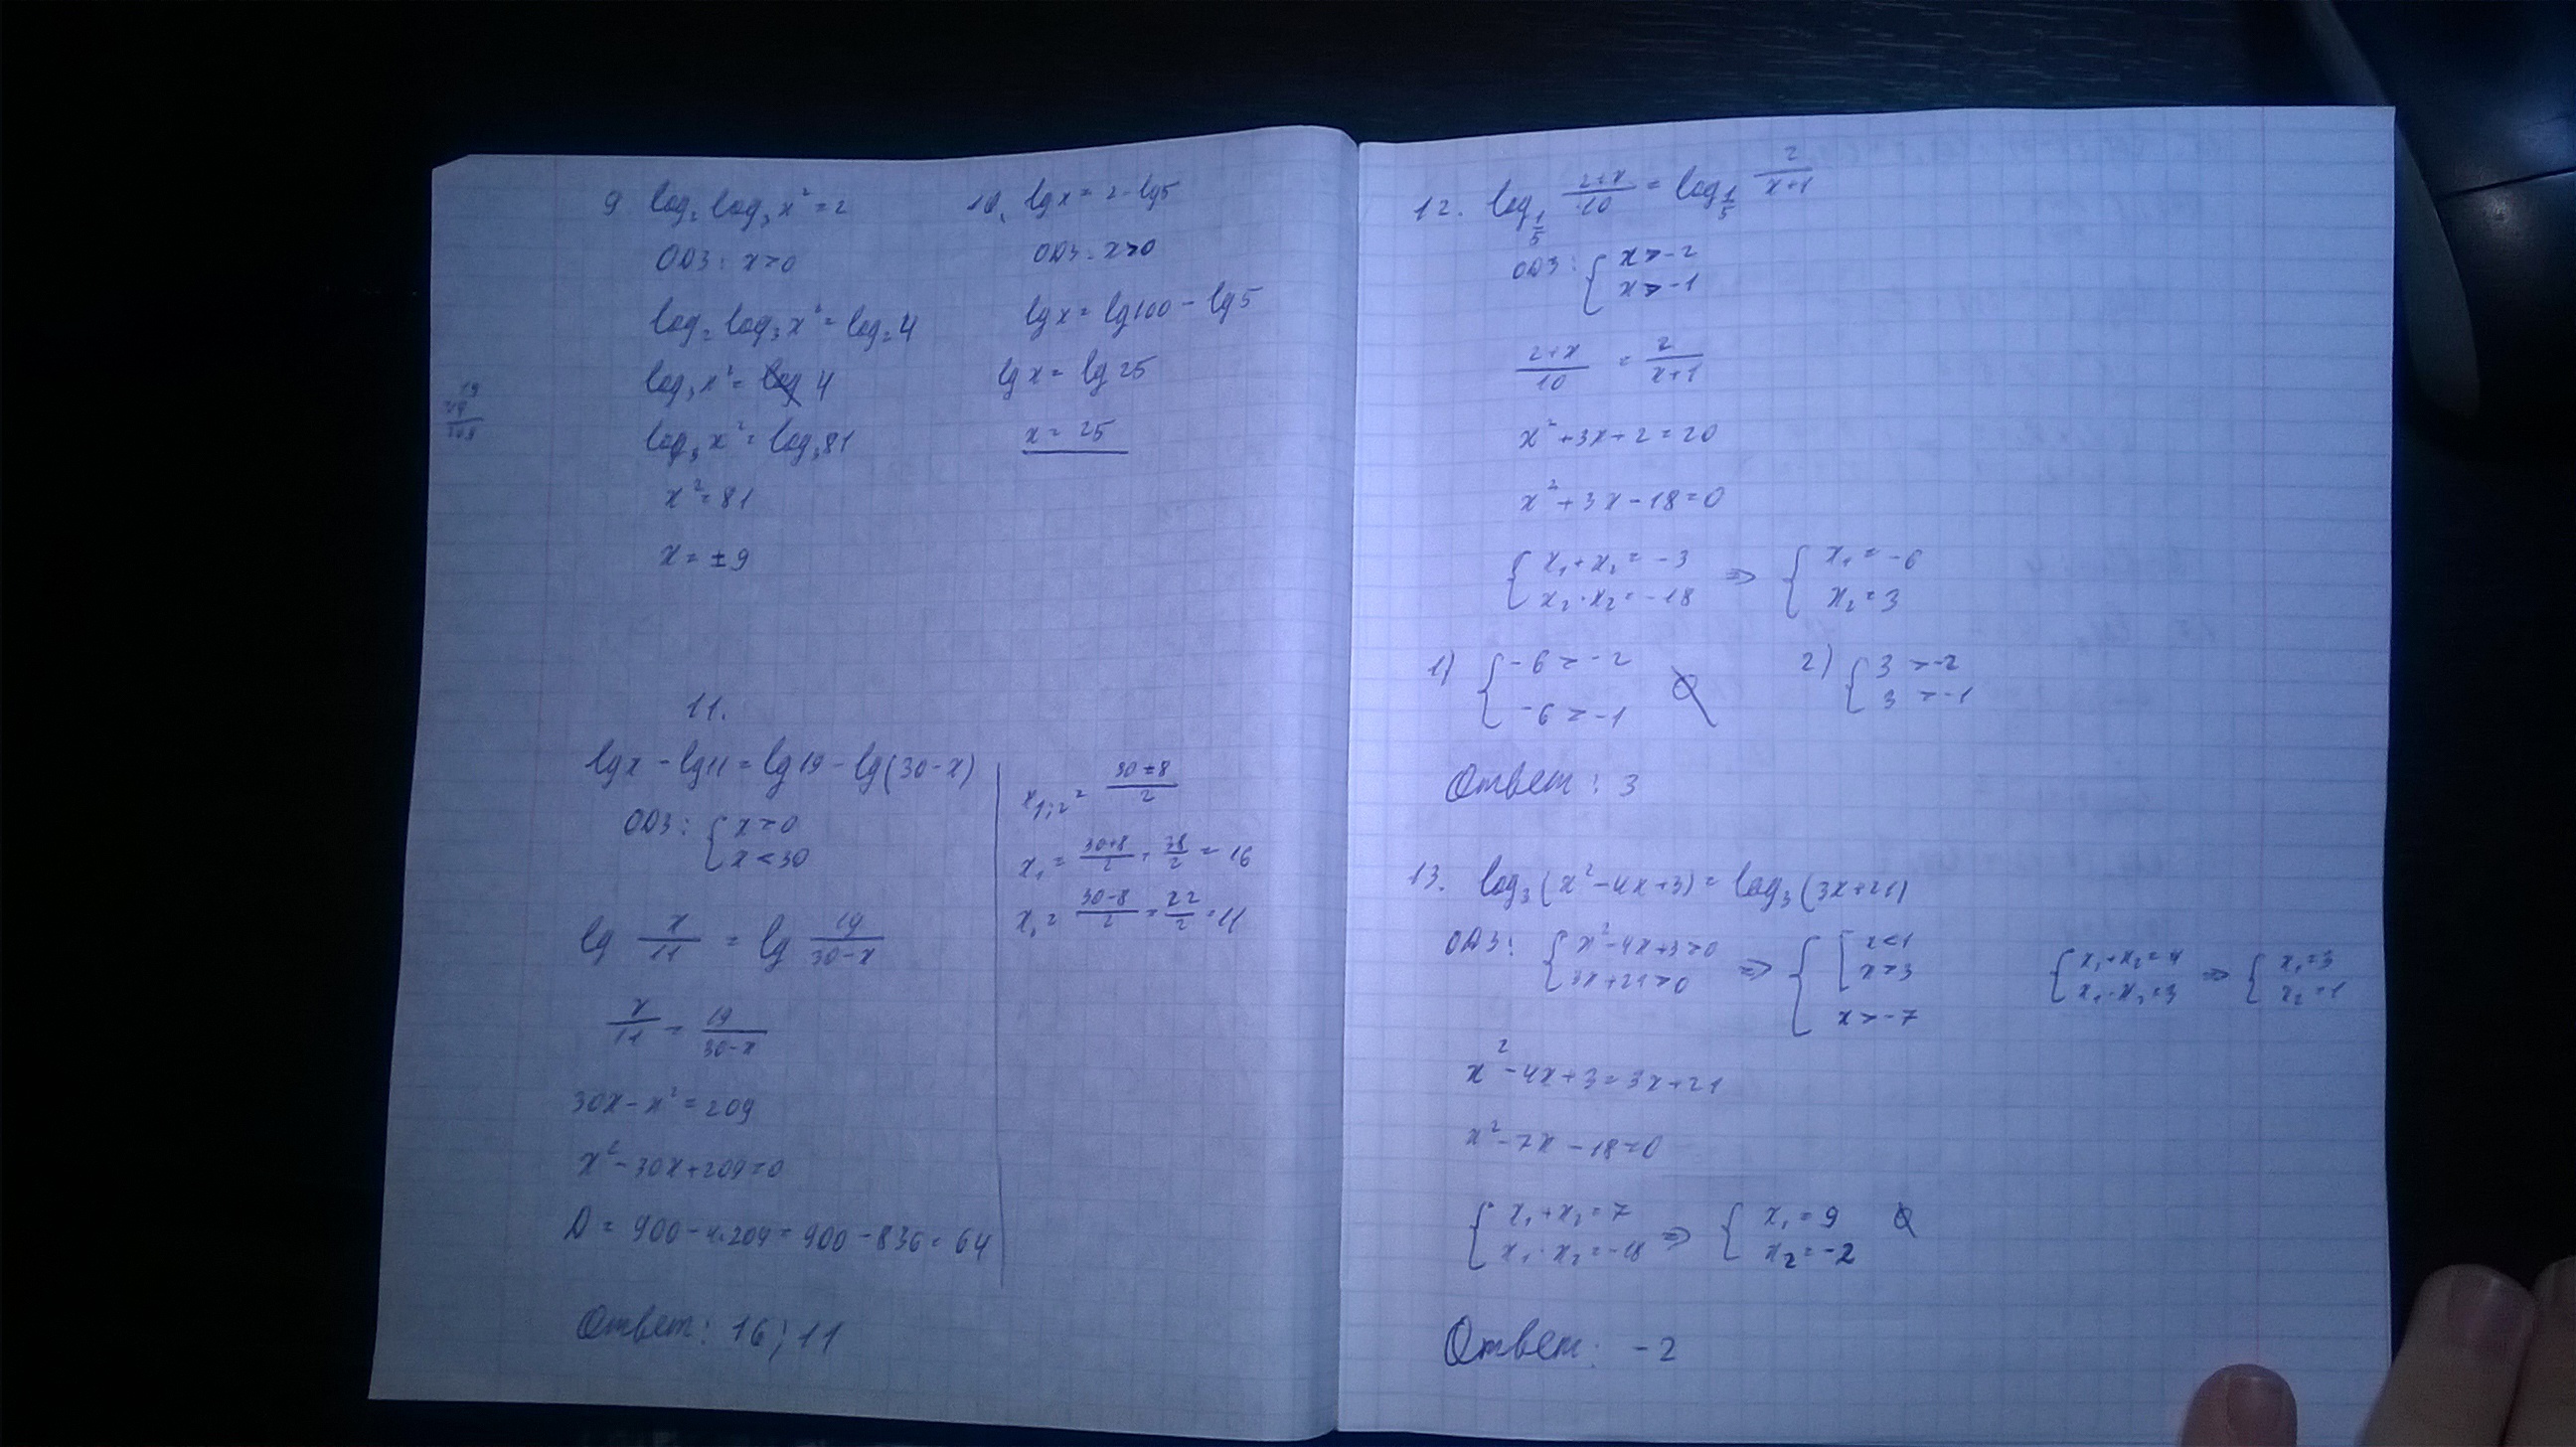 9 log₂ log₃ x² = 2
ОДЗ: x > 0
log₂ log₃ x² = log₂ 4
log₃ x² = 4
log₃ x² = log₃ 81
x² = 81
x = ± 9
10. lg x = 2 - lg 5
ОДЗ: x > 0
lg x = lg 100 - lg 5
lg x = lg 25
x = 25
11.
lg x - lg 11 = lg 19 - lg (30 - x)
ОДЗ: { x > 0
x < 30
lg x/11 = lg 19/(30 - x)
x/11 = 19/(30 - x)
30x - x² = 209
x² - 30x + 209 = 0
D = 900 - 4·209 = 900 - 836 = 64
x₁;₂ = (30 ± 8)/2
x₁ = (30+8)/2 = 38/2 = 16
x₂ = (30-8)/2 = 22/2 = 11
Ответ: 16; 11
12. log_(1/5) (2+x)/10 = log_(1/5) 2/(x+1)
ОДЗ: { x > -2
x > -1
(2+x)/10 = 2/(x+1)
x² + 3x + 2 = 20
x² + 3x - 18 = 0
{ x₁ + x₂ = -3 ⇒ { x₁ = -6
x₂ · x₂ = -18 x₂ = 3
1) { -6 > -2 ∅ 2) { 3 > -2
-6 > -1 3 > -1
Ответ: 3
13. log₃ (x² - 4x + 3) = log₃ (3x + 21)
ОДЗ: { x² - 4x + 3 > 0 ⇒ { [ x < 1 { x₁ + x₂ = 4 ⇒ { x₁ = 3
3x + 21 > 0 x > 3 x₁ · x₂ = 3 x₂ = 1
x > -7
x² - 4x + 3 = 3x + 21
x² - 7x - 18 = 0
{ x₁ + x₂ = 7 ⇒ { x₁ = 9 ∅
x₁ · x₂ = -18 x₂ = -2
Ответ: -2